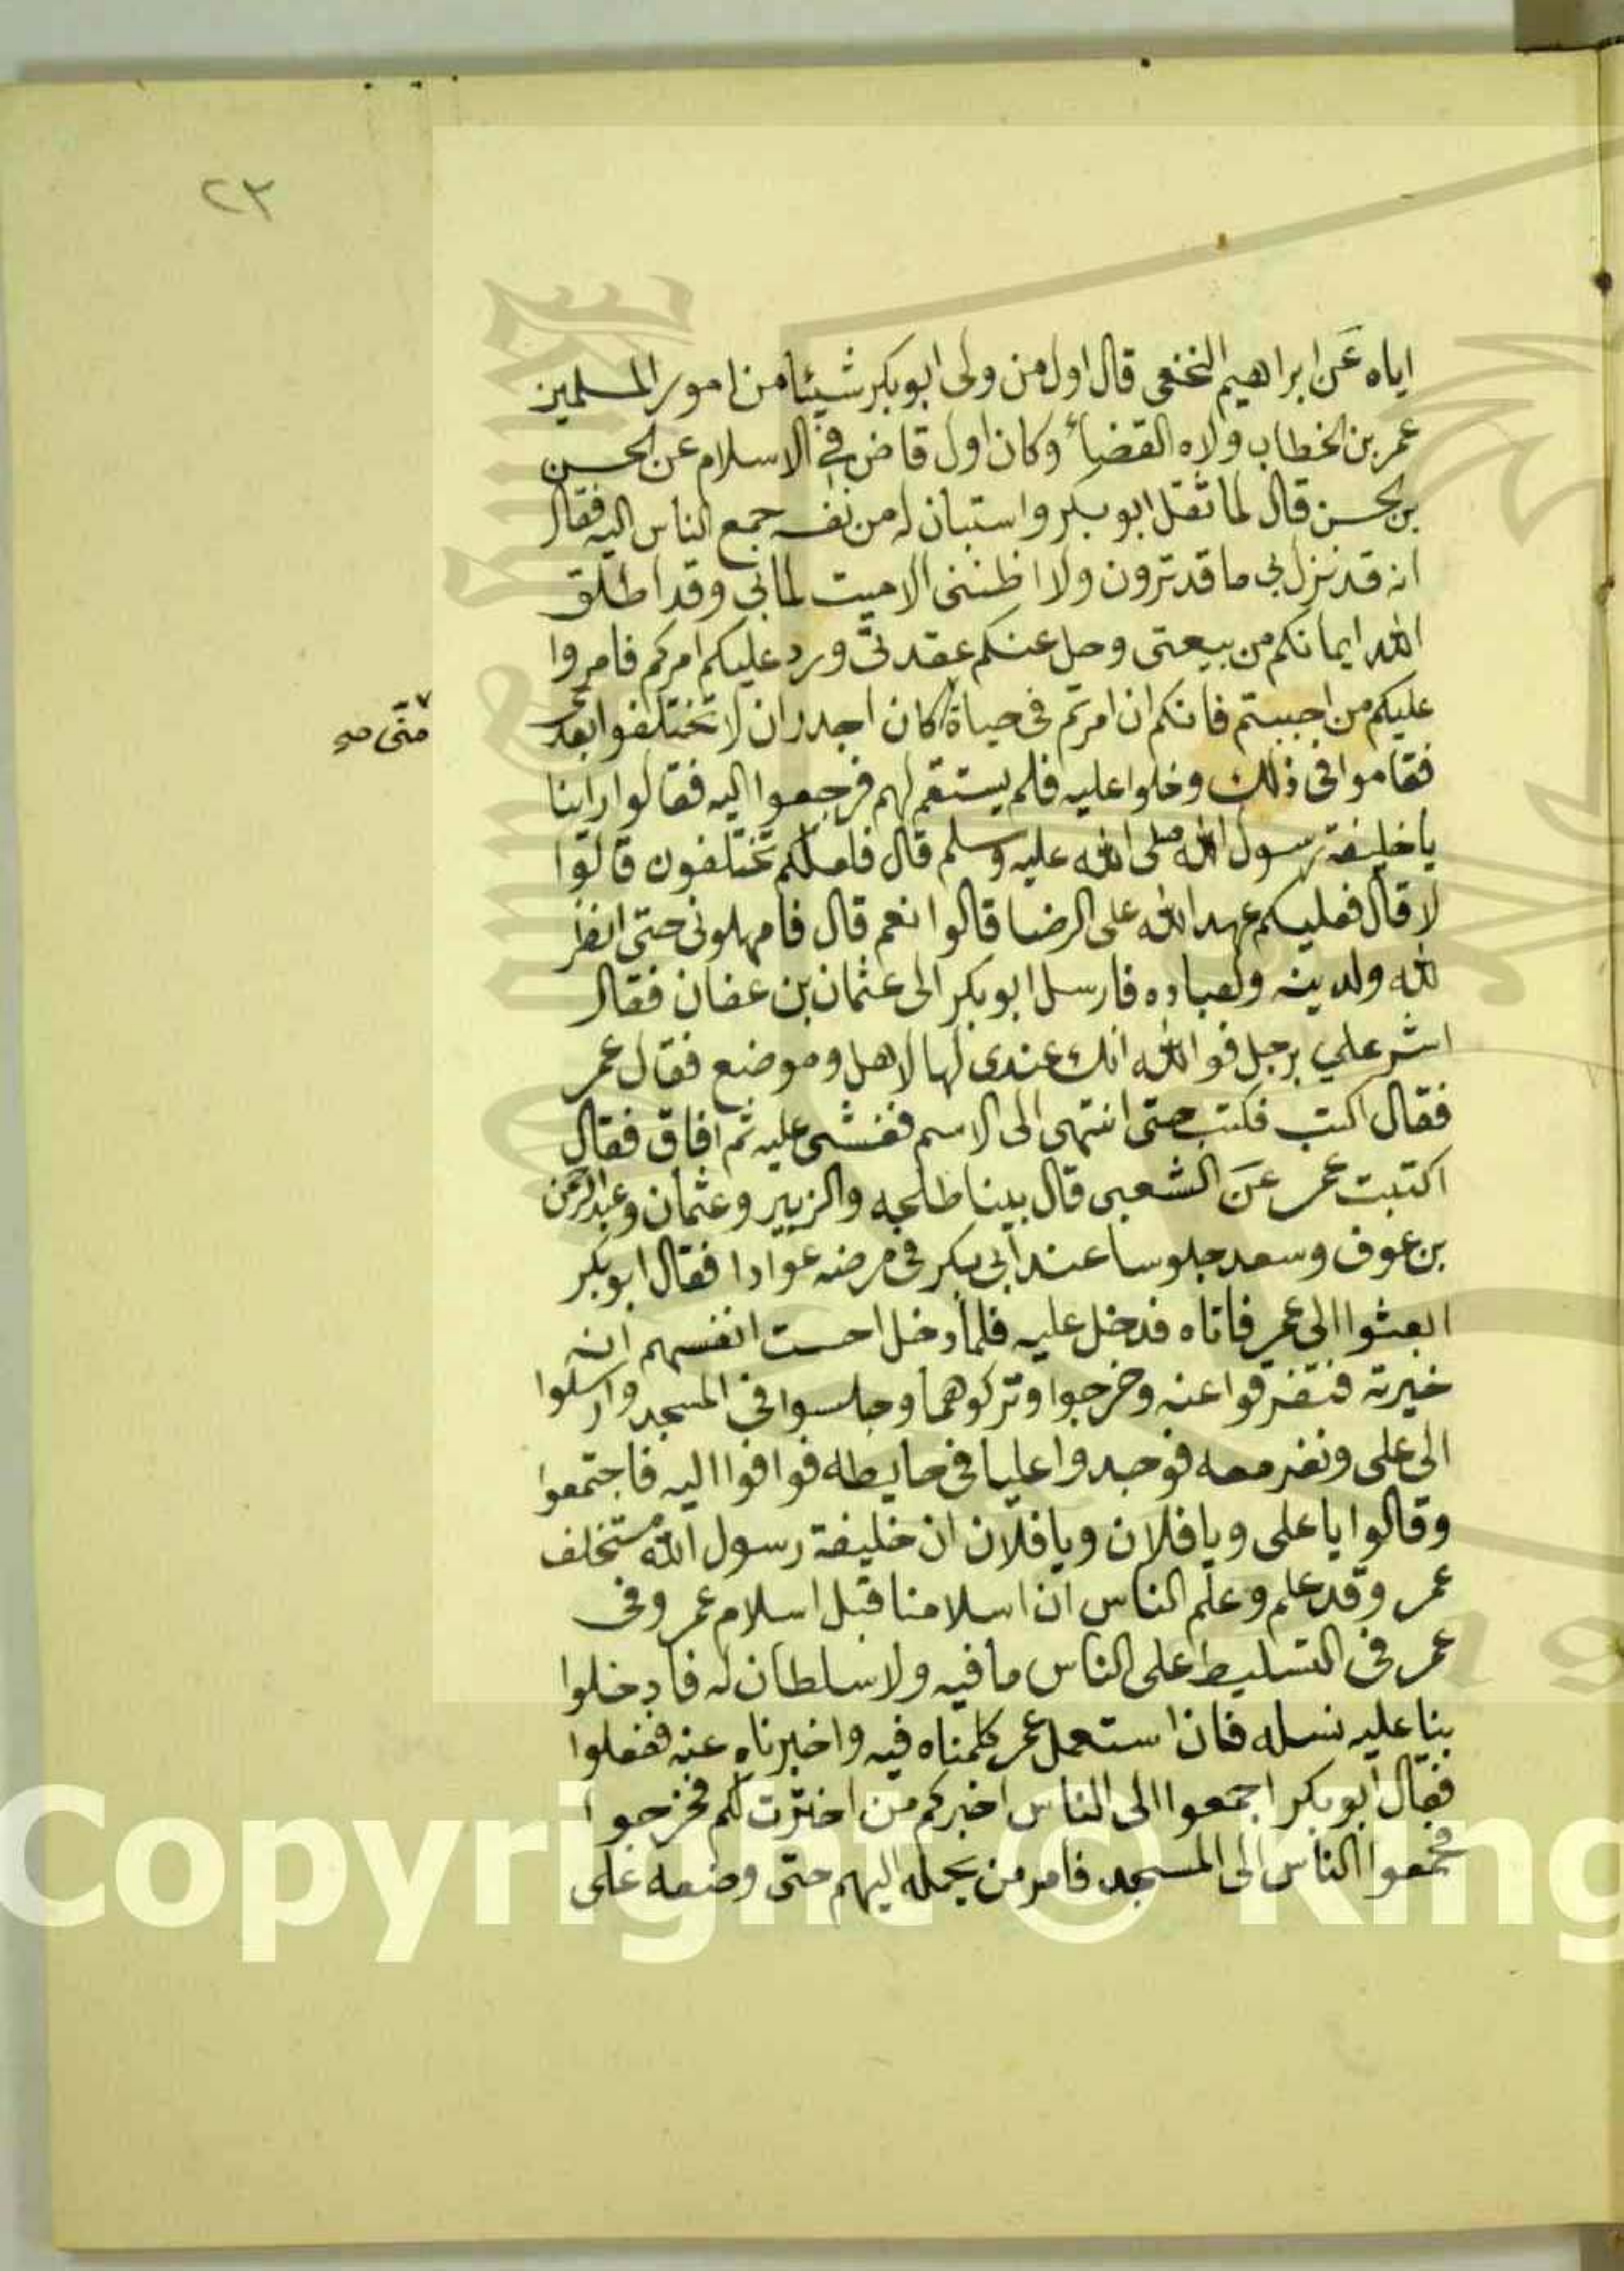 ٢٣
اياه عن ابراهيم النخعى قال اول من ولى ابو بكر شيئا من امور المسلمين
عمر بن الخطاب ولاه القضاء وكان اول قاض فى الاسلام عن الحسن
بن الحسن قال لما ثقل ابو بكر واستبان له من نفسه جمع الناس اليه فقال
انه قد نزل بى ما قد ترون ولا اظننى الا ميت لمابى وقد اطلق
الله ايمانكم من بيعتى وحل عنكم عقدتى ورد عليكم امركم فامروا
عليكم من احببتم فانكم ان امرتم فى حياة كان اجدر ان لا تختلفوا بعدى
منى صح
فقاموا فى ذلك وخلوا عليه فلم يستقم لهم فرجعوا اليه فقالوا راينا
يا خليفة رسول الله صلى الله عليه وسلم قال فلعلكم تختلفون قالوا
لا قال فعليكم عهد الله على الرضا قالوا نعم قال فامهلونى حتى انظر
لله ولدينه ولعباده فارسل ابو بكر الى عثمان بن عفان فقال
اشر علي برجل فوالله انك عندى لها لاهل وموضع فقال عمر
فقال اكتب فكتب حتى انتهى الى الاسم فغشى عليه ثم افاق فقال
اكتبت عمر عن الشعبى قال بينا طلحه والزبير وعثمان وعبد الرحمن
بن عوف وسعد جلوسا عند ابى بكر فى مرضه عوادا فقال ابو بكر
ابعثوا الى عمر فاتاه فدخل عليه فلما دخل احست انفسهم انه
خيرته فتفرقوا عنه وخرجوا وتركوهما وجلسوا فى المسجد وارسلوا
الى على ونفر معه فوجدوا عليا فى حايطه فوافوا اليه فاجتمعوا
وقالوا يا على ويا فلان ويا فلان ان خليفة رسول الله مستخلف
عمر وقد علم وعلم الناس ان اسلامنا قبل اسلام عمر وفى
عمر فى التسليط على الناس ما فيه ولا سلطان له فادخلوا
بنا عليه نسله فان استعمل عمر كلمناه فيه واخبرناه عنه ففعلوا
فقال ابو بكر اجمعوا الى الناس اخبركم من اخترت لكم فخرجوا
فجمعوا الناس الى المسجد فامر من يحمله اليهم حتى وضعه على
Copyright © King